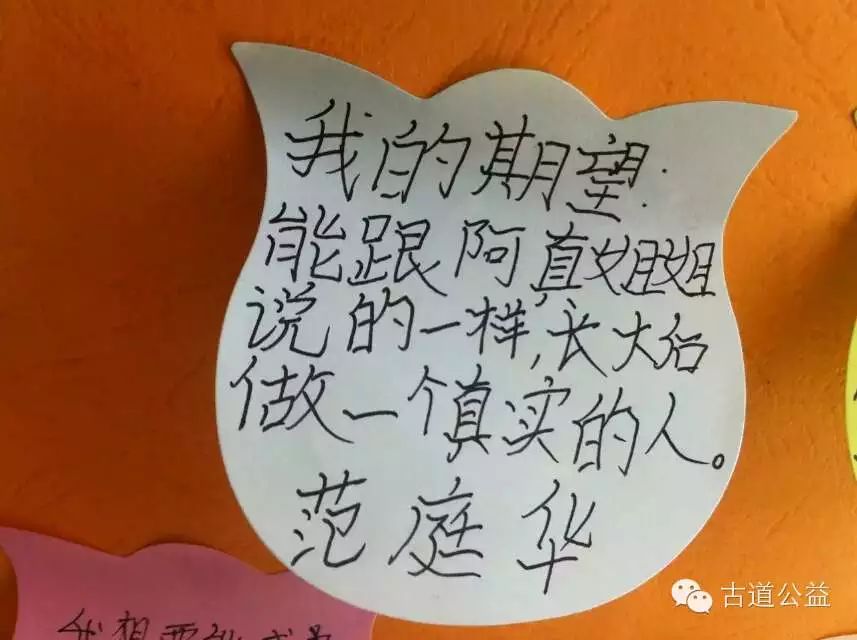 我的期望:
能跟阿真姐姐
说的一样,长大后
做一个真实的人。
范庭华
我想要
古道公益